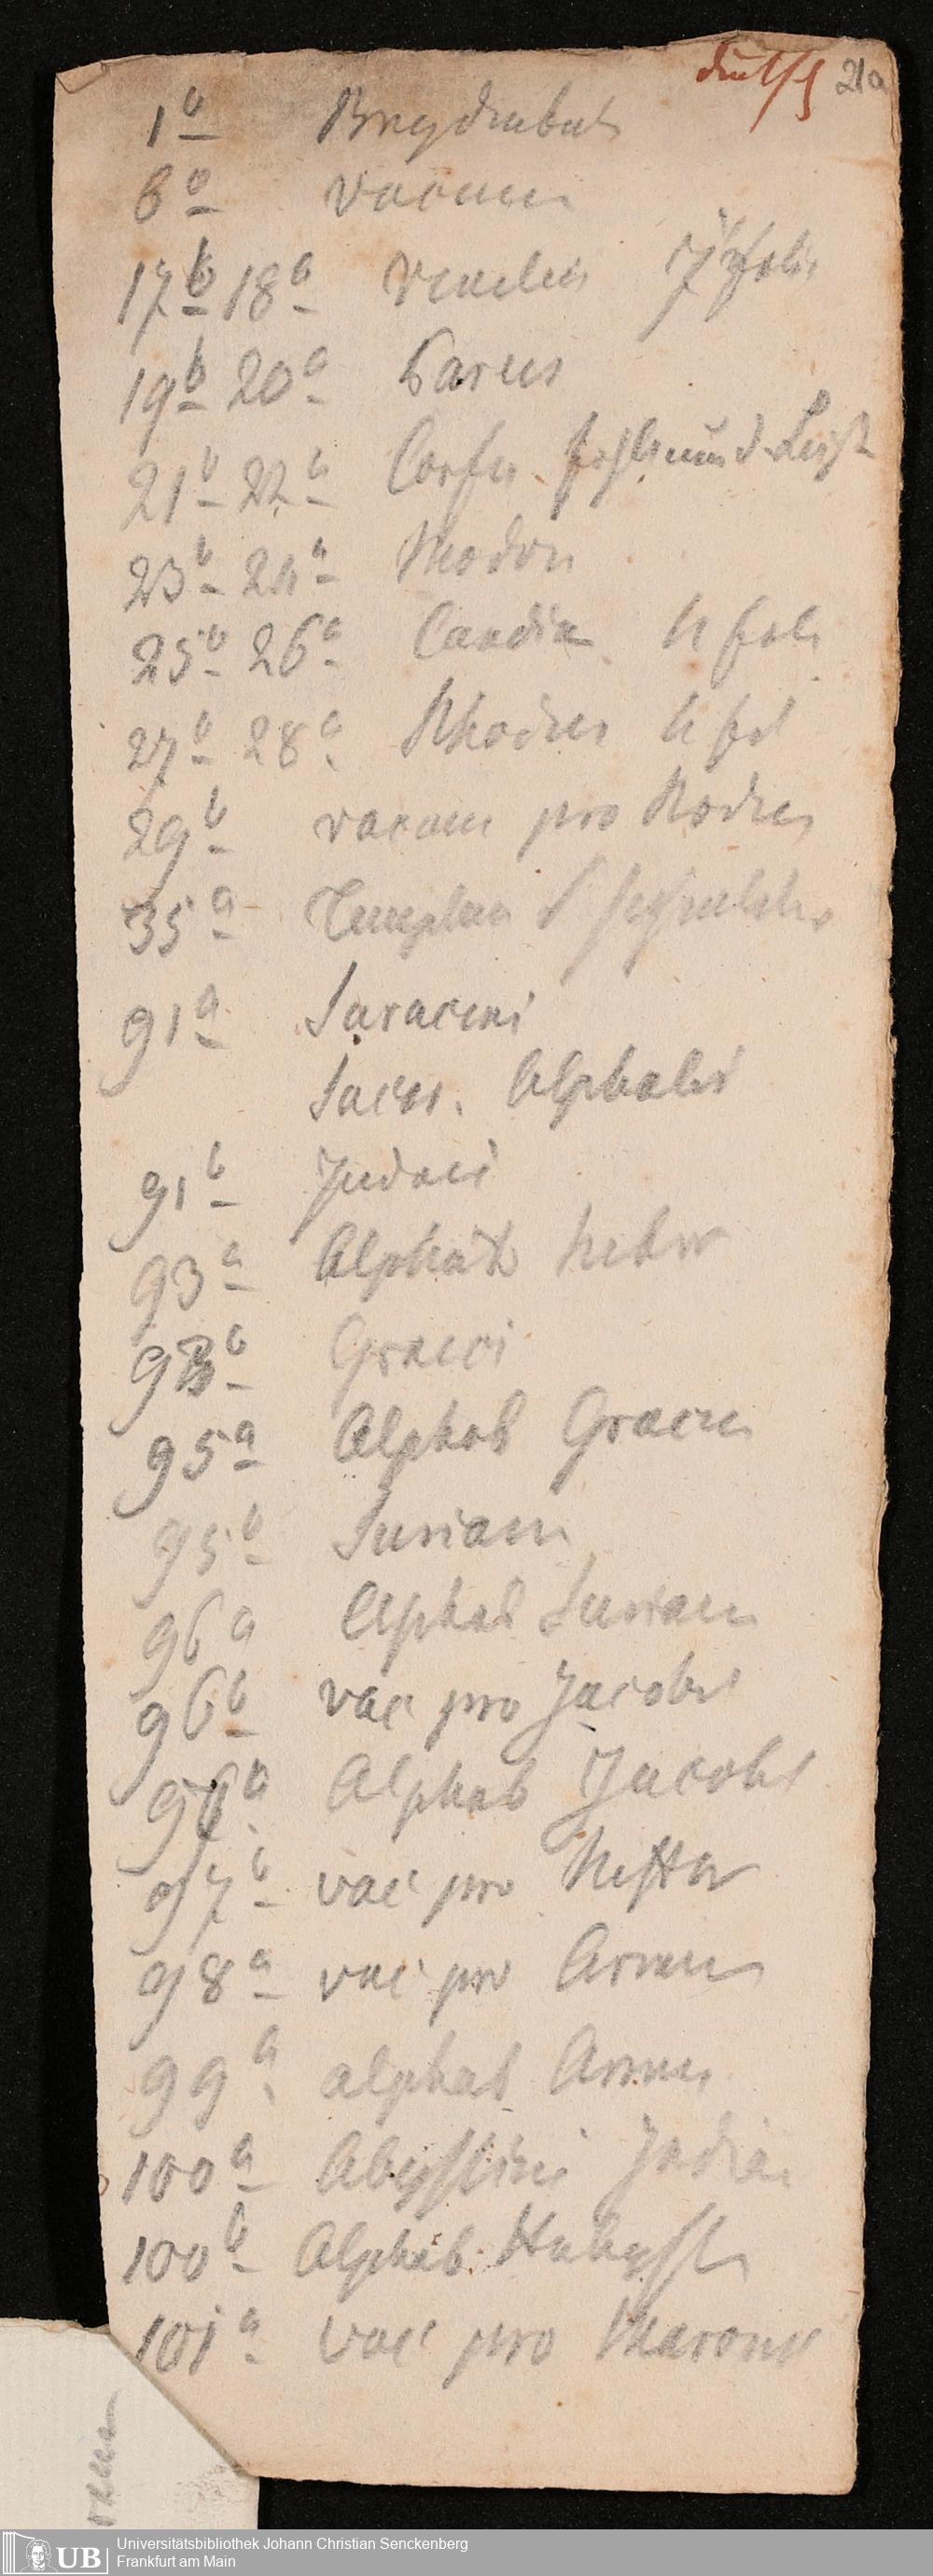 deutsch 21a
1b Breydenbach
6a vacuum
17b 18a Venedig 7 fol
19b 20a Parens
21b 22a Corfu
23b 24a Modon
25b 26a Candia 4 fol
27b 28a Rhodes 4 fol
29b vacuum pro Rodes
35a Templum S
91a Saraceni
Sarac. Alphabet
91b Judaei
93a Alphab hebr
93b Graeci
95a Alphab Graecu
95b Suriani
96a Alphab Surian
96b vac pro Jacobi
96a Alphab Jacobi
97b vac pro Nestor
98a vac pro Armen
99a alphab Armen
100a Abyssini India
100b Alphab. Habyss
101a vac pro Maroni
vacu
UB
Universitätsbibliothek Johann Christian Senckenberg
Frankfurt am Main